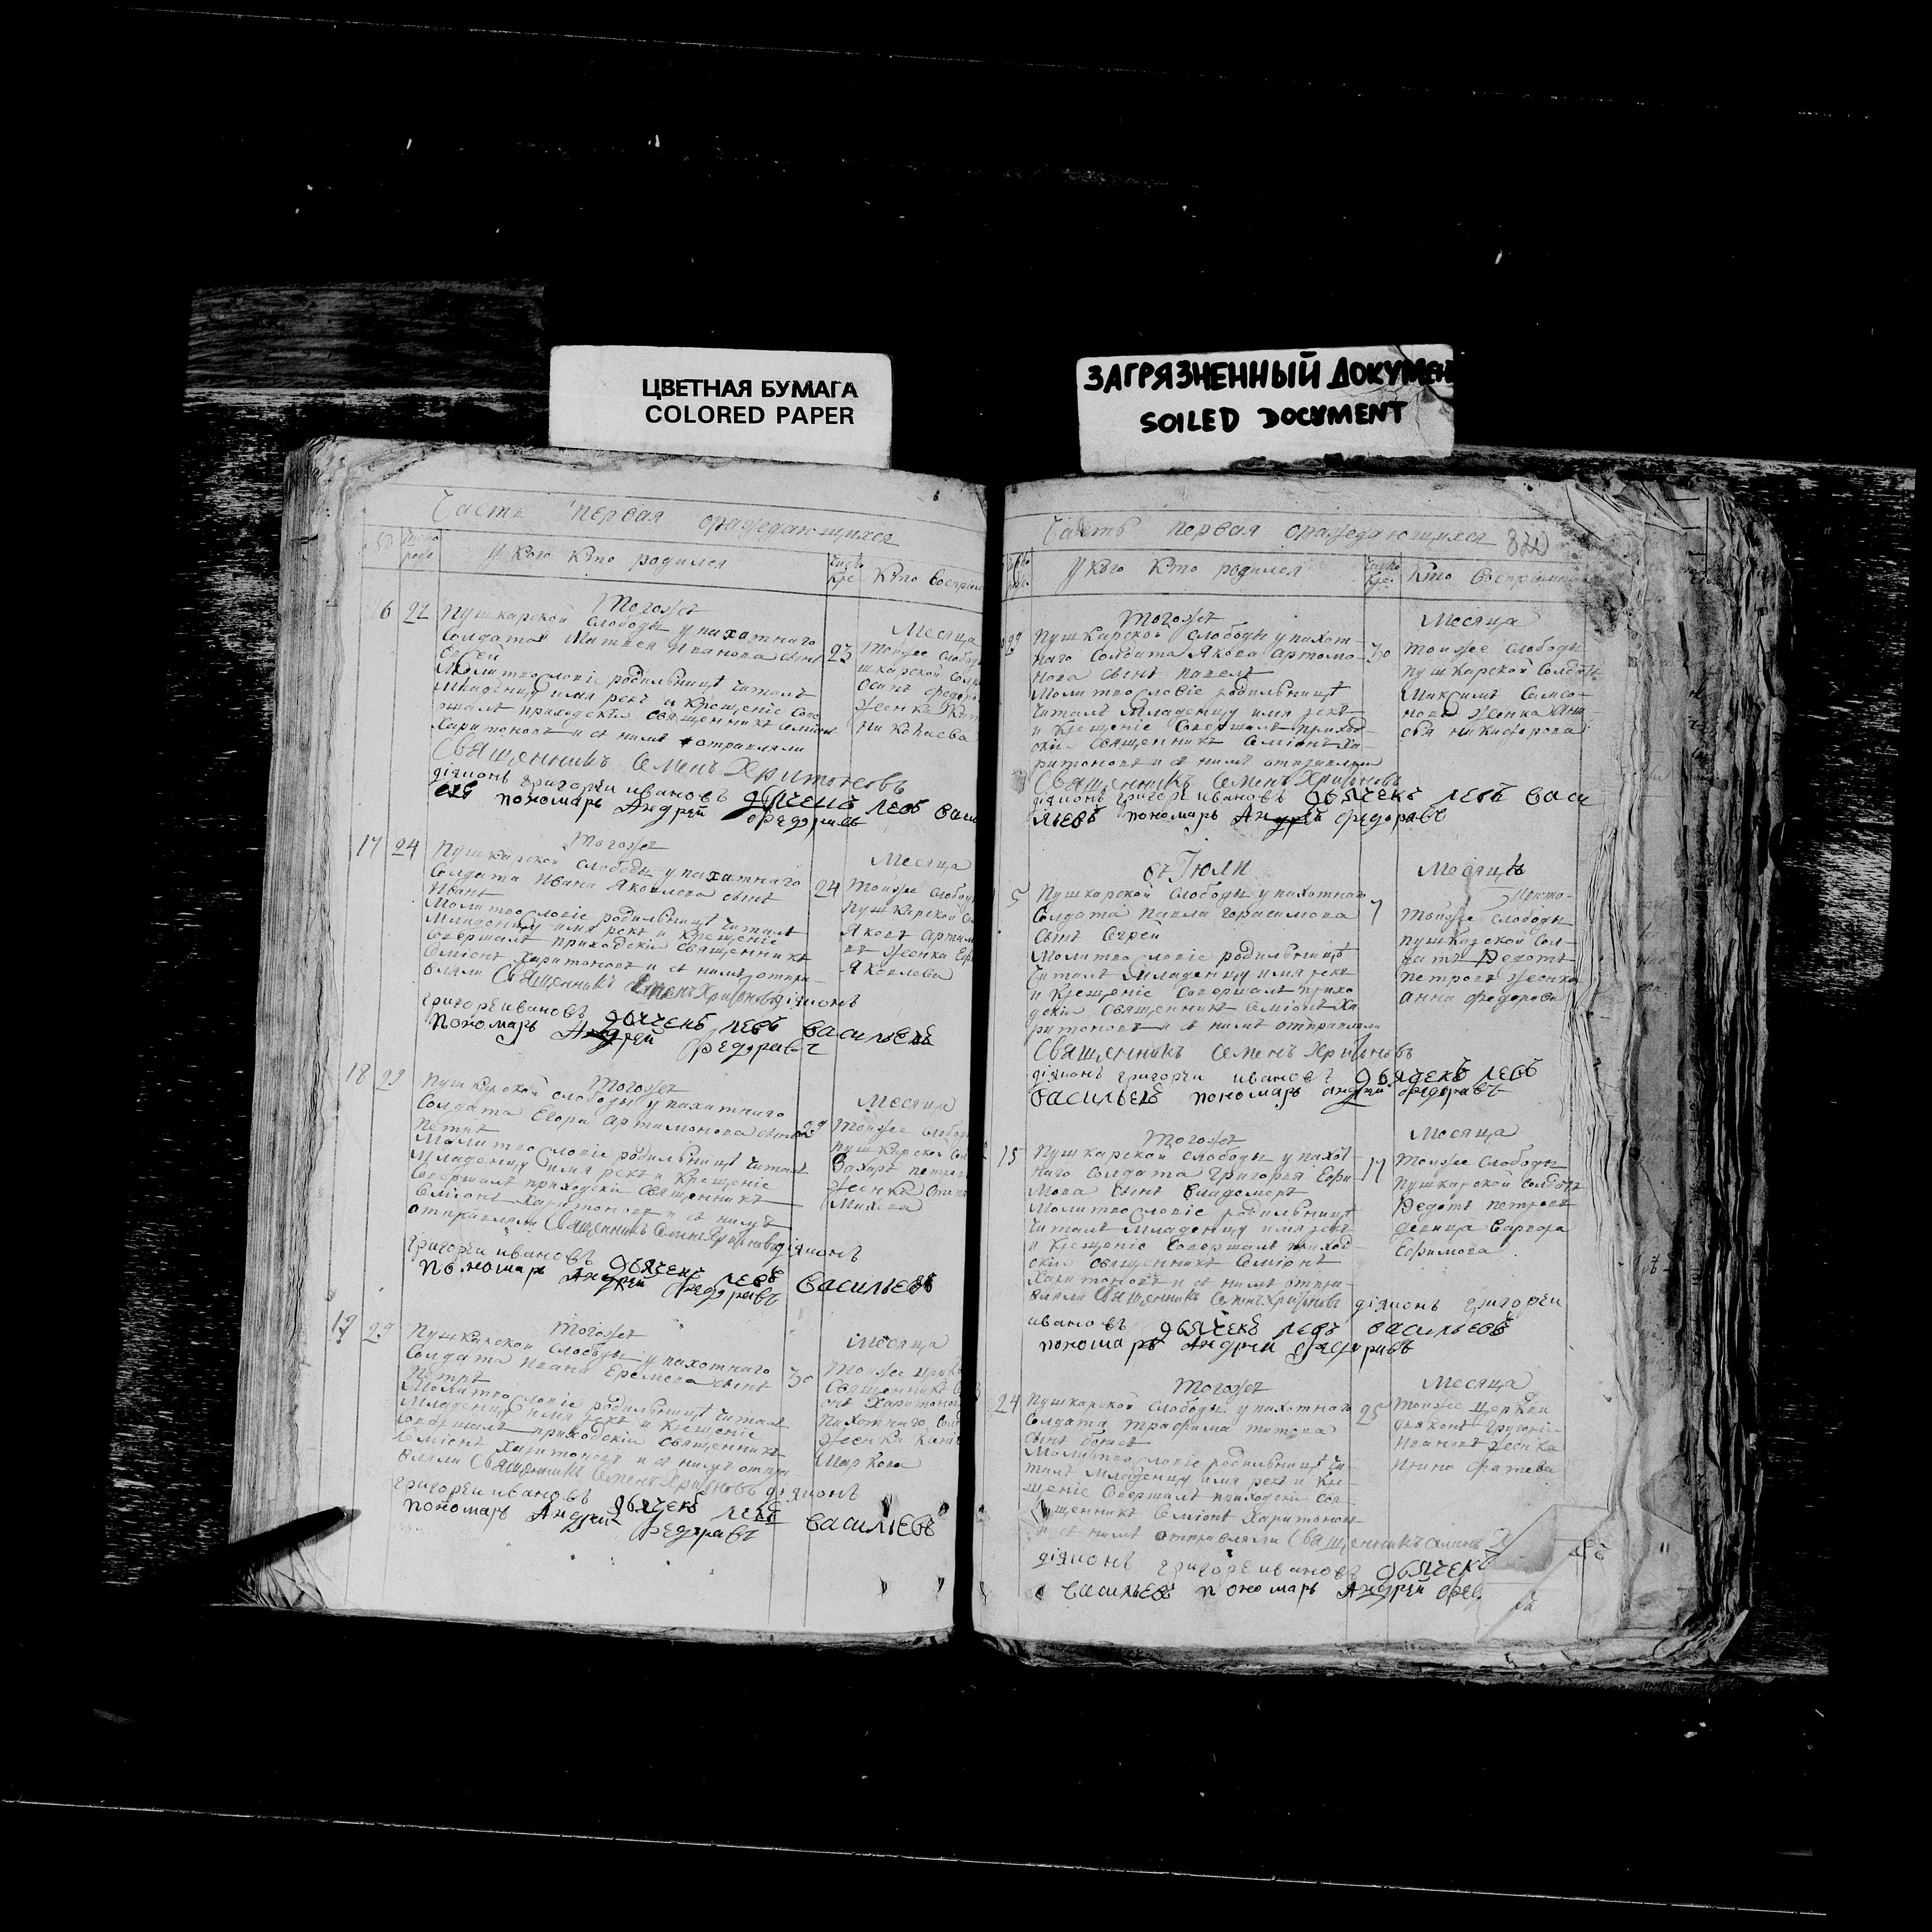 ЦВЕТНАЯ БУМАГА
COLORED PAPER
ЗАГРЯЗНЕННЫЙ ДОКУМЕН
SOILED DOCUMENT
Часть первая ораждающихся
число
роде
У кого кто родился
число
кре
Кто Восприем
16 22
Тогожъ
Пушкарской Слободы у пахатнаго
Солдата Матвея Иванова сынъ
Молитвословіе родильницѣ читалъ
младенцу имя рекъ и Крещеніе Сове
ршалъ приходскіи священникъ Семіонъ
Харитоновъ и съ нимъ отправляли
Священникъ Семенъ Хритоновъ
діяконъ Григореи ивановъ дьячекъ левъ васи
евъ пономарь Андрей Федоравъ
23
Месяца
Тоиже Слобод
шкарской Сол
Осипъ Федоро
Женка
17 24
Тогожъ
Пушкарской Слободы у пахатнаго
Солдата Ивана Яковлева сынъ
Иванъ
Молитвословіе родильницѣ читалъ
Младенцу имя рекъ и Крещеніе
Совершалъ приходскіи священникъ
Семіонъ Харитоновъ и съ нимъ отпра-
вляли Священникъ Семенъ Хритоновъ діяконъ
григореи ивановъ дьячекъ левъ васильевъ
пономарь Андрей Федоравъ
24
Месяца
Тоиже Слобод
Пушкарской Со
Яковъ Артим
въ Женка
Яковлева
18 29
Тогожъ
Пушкарской слободы у пахатнаго
Солдата Егора Артимонова сынъ
Петръ
Молитвословіе родильницѣ читалъ
Младенцу имя рекъ и Крещеніе
Совершалъ приходскіи Священникъ
Семіонъ Харитоновъ и съ нимъ
отправляли Священникъ Семенъ Хритоновъ діяконъ
григореи ивановъ дьячекъ левъ васильевъ
пономарь Андрей Федоравъ
29
Месяца
Тоиже Слобод
пушкарской Сол
Захаръ петров
Женка
19 29
Тогожъ
Пушкарской Слободы у пахотнаго
Солдата Ивана Еремева сынъ
Петръ
Молитвословіе родильницѣ читалъ
Младенцу имя рекъ и Крещеніе
Совершалъ приходскіи священникъ
Семіонъ Харитоновъ и съ нимъ отпра
вляли Священникъ Семенъ Хритоновъ діяконъ
григореи ивановъ дьячекъ левъ васильевъ
пономарь Андрей Федоравъ
30
Месяца
Тоиже церкв
Священникъ
онъ Харитонов
Пахотнаго Сол
Женка
Маркова
Часть первая ораждающихся
У кого Кто родился
число
кре.
Кто Восприем
29
Тогожъ
Пушкарской Слободы у пахот-
наго Солдата Якова Артомо-
нова сынъ Павелъ
Молитвословіе родильницѣ
Читалъ Младенцу имя рекъ
и Крещеніе Совершалъ приход-
скіи Священникъ Семіонъ Ха-
ритоновъ и съ нимъ отправляли
Священникъ Семенъ Хритоновъ
діяконъ григореи ивановъ дьячекъ левъ васи
льевъ пономарь Андрей Федоравъ
30
Месяца
Тоиже Слободы
Пушкарской Солдатъ
Максимъ Самсо-
новъ Женка
Никифорова
5
въ Іюли
Пушкарской Слободы у пахотнаго
Солдата Павла Горасимова
Сынъ
Молитвословіе родильницѣ
Читалъ Младенцу имя рекъ
и Крещеніе Совершалъ прихо
дскіи Священникъ Семіонъ Ха
ритоновъ и съ нимъ отправляли
Священникъ Семенъ Хритоновъ
діяконъ григореи ивановъ дьячекъ левъ
васильевъ пономарь андрей федоравъ
7
Месяцъ
Тоиже Слободы
пушкарской Сол-
датъ Федотъ
Петровъ Женка
Анна Федорова
15
Тогожъ
Пушкарской Слободы у пахот
наго Солдата Григорья Ефи-
мова сынъ Владемеръ
Молитвословіе родильницѣ
Читалъ Младенцу имя рекъ
и Крещеніе Совершалъ приход-
скіи священникъ Семіонъ
Харитоновъ и съ нимъ отпра-
вляли Священникъ Семенъ Хритоновъ діяконъ григореи
ивановъ дьячекъ левъ васильевъ
пономарь Андрей Федоравъ
17
Месяца
Тоиже Слободы
Пушкарской Солдатъ
Федотъ Петровъ
девица Варвара
Ефимова
24
Тогожъ
Пушкарской Слободы у пахотнаго
Солдата Трафима Титова
сынъ Борисъ
Молитвословіе родильницѣ Чи-
талъ Младенцу имя рекъ и Кре-
щеніе Совершалъ приходскіи Свя-
щенникъ Семіонъ Харитоновъ
и съ нимъ отправляли Священникъ Семенъ
діяконъ григореи ивановъ дьячекъ
васильевъ пономарь Андрей Фед
25
Месяца
Тоиже Церкви
дьяконъ Григорій
Ивановъ Женка